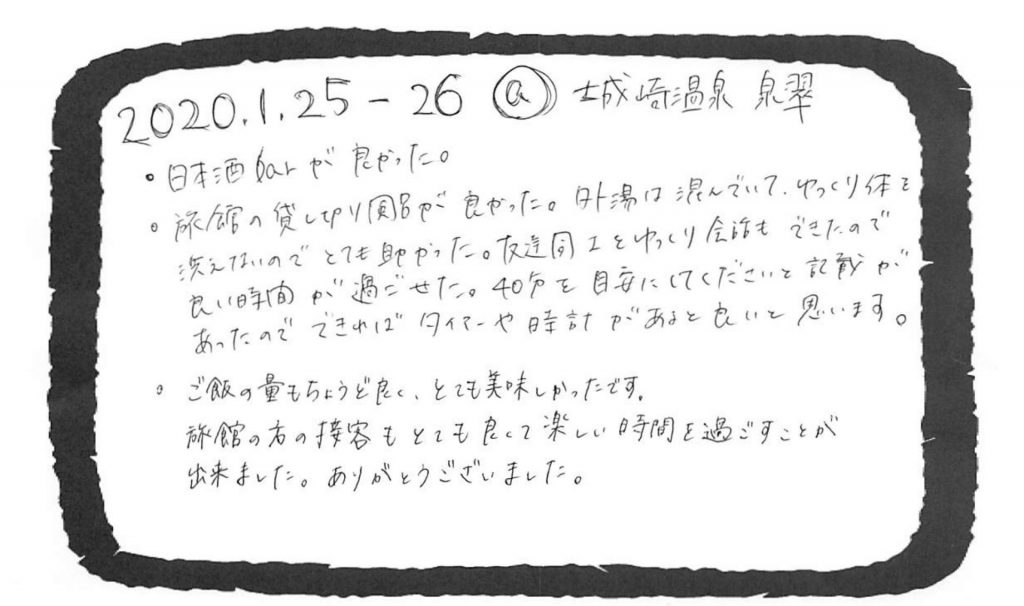 2020.1.25-26 @ 城崎温泉 泉翠
・日本酒barが良かった。
・旅館の貸し切り風呂が良かった。外湯は混んでいて、ゆっくり体を
洗えないのでとても助かった。友達同士とゆっくり会話もできたので
良い時間が過ごせた。40分を目安にしてくださいと記載が
あったのでできればタイマーや時計があると良いと思います。
・ご飯の量もちょうど良く、とても美味しかったです。
旅館の方の接客もとても良くて楽しい時間を過ごすことが
出来ました。ありがとうございました。